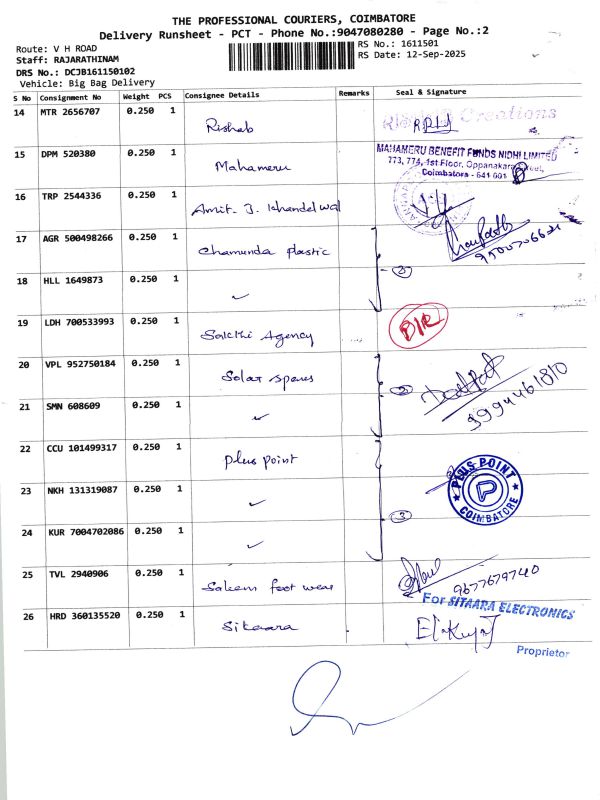 THE PROFESSIONAL COURIERS, COIMBATORE
Delivery Runsheet - PCT - Phone No.:9047080280 - Page No.:2
Route: V H ROAD
RS No.: 1611501
Staff: RAJARATHINAM
RS Date: 12-Sep-2025
DRS No.: DCJB161150102
Vehicle: Big Bag Delivery
S No Consignment No Weight PCS Consignee Details Remarks Seal & Signature
14 MTR 2656707 0.250 1 Rishab Creations
15 DPM 520380 0.250 1 Mahameru
MAHAMERU BENEFIT FUNDS NIDHI LIMITED
773, 774, 1st Floor, Oppanakara Street,
Coimbatore - 641 001
16 TRP 2544336 0.250 1 Amit. J. Khandelwal
17 AGR 500498266 0.250 1 Chamunda plastic
18 HLL 1649873 0.250 1 ✓ 2
19 LDH 700533993 0.250 1 Sakthi Agency
20 VPL 952750184 0.250 1 Solar spares
21 SMN 608609 0.250 1 ✓ 2 9994461810
22 CCU 101499317 0.250 1 plus point
PLUS POINT
COIMBATORE
23 NKH 131319087 0.250 1 ✓
24 KUR 7004702086 0.250 1 ✓ 3
25 TVL 2940906 0.250 1 Salem foot wear 9677679740
For SITAARA ELECTRONICS
26 HRD 360135520 0.250 1 Sitaara
Proprietor